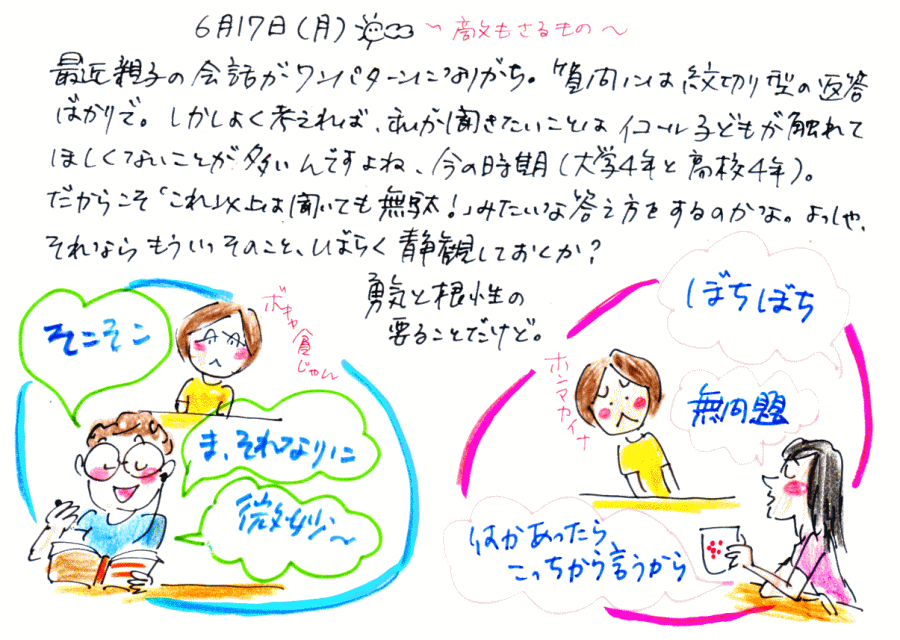 6月17日(月) ~敵もさるもの~
最近親子の会話がワンパターンになりがち。質問には紋切り型の返答
ばかりで。しかしよく考えれば、私が聞きたいことはイコール子どもが触れて
ほしくないことが多いんですよね、今の時期(大学4年と高校4年)。
だからこそ「これ以上は聞いても無駄!」みたいな答え方をするのかな。よっしゃ、
それならもういっそのこと、しばらく静観しておくか?
勇気と根性の
要ることだけど。
そこそこ
ボキャ貧じゃん
ま、それなりに
微妙~
ぼちぼち
ホンマカイナ
無問題
何かあったら
こっちから言うから